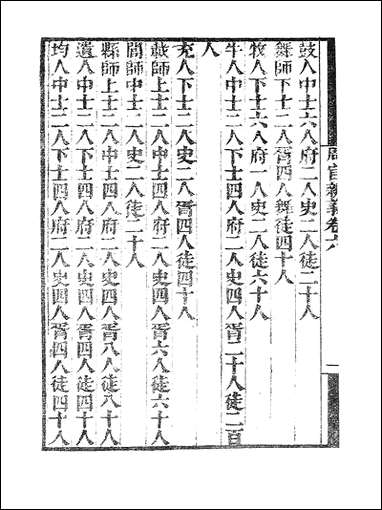 周官新義卷六
一
鼓人中士六人府二人史二人徒二十人
舞師下士二人胥四人舞徒四十人
牧人下士六人府一人史二人徒六十人
牛人中士二人下士四人府二人史四人胥二十人徒二百
人
充人下士二人史二人胥四人徒四十人
載師上士二人中士四人府二人史四人胥六人徒六十人
閭師中士二人史二人徒二十人
縣師上士二人中士四人府二人史四人胥八人徒八十人
遺人中士二人下士四人府二人史四人胥四人徒四十人
均人中士二人下士四人府二人史四人胥四人徒四十人